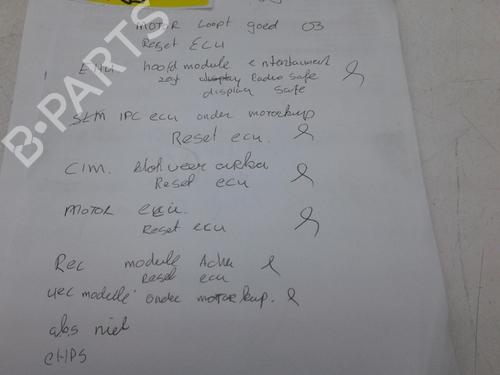 MOTOR Loopt goed 03
Reset ECU
EHU hoofd module entertainment
zegt display Radio safe
display safe
SLM IPC ecu onder motorkap
Reset ecu.
CIM.
Reset ecu
MOTOR ecu.
Reset ecu
Rec module Achter
Reset ecu
uec module onder motorkap.
abs niet
EHPS
B-PARTS